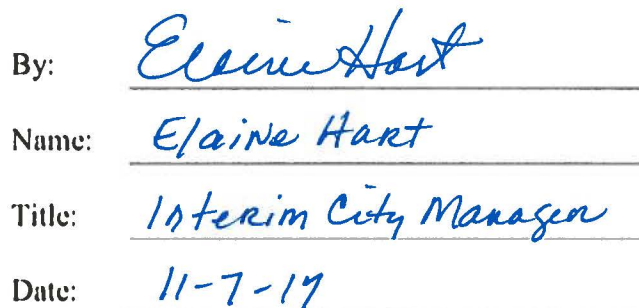 By: Elaine Hart
Name: Elaine Hart
Title: Interim City Manager
Date: 11-7-17